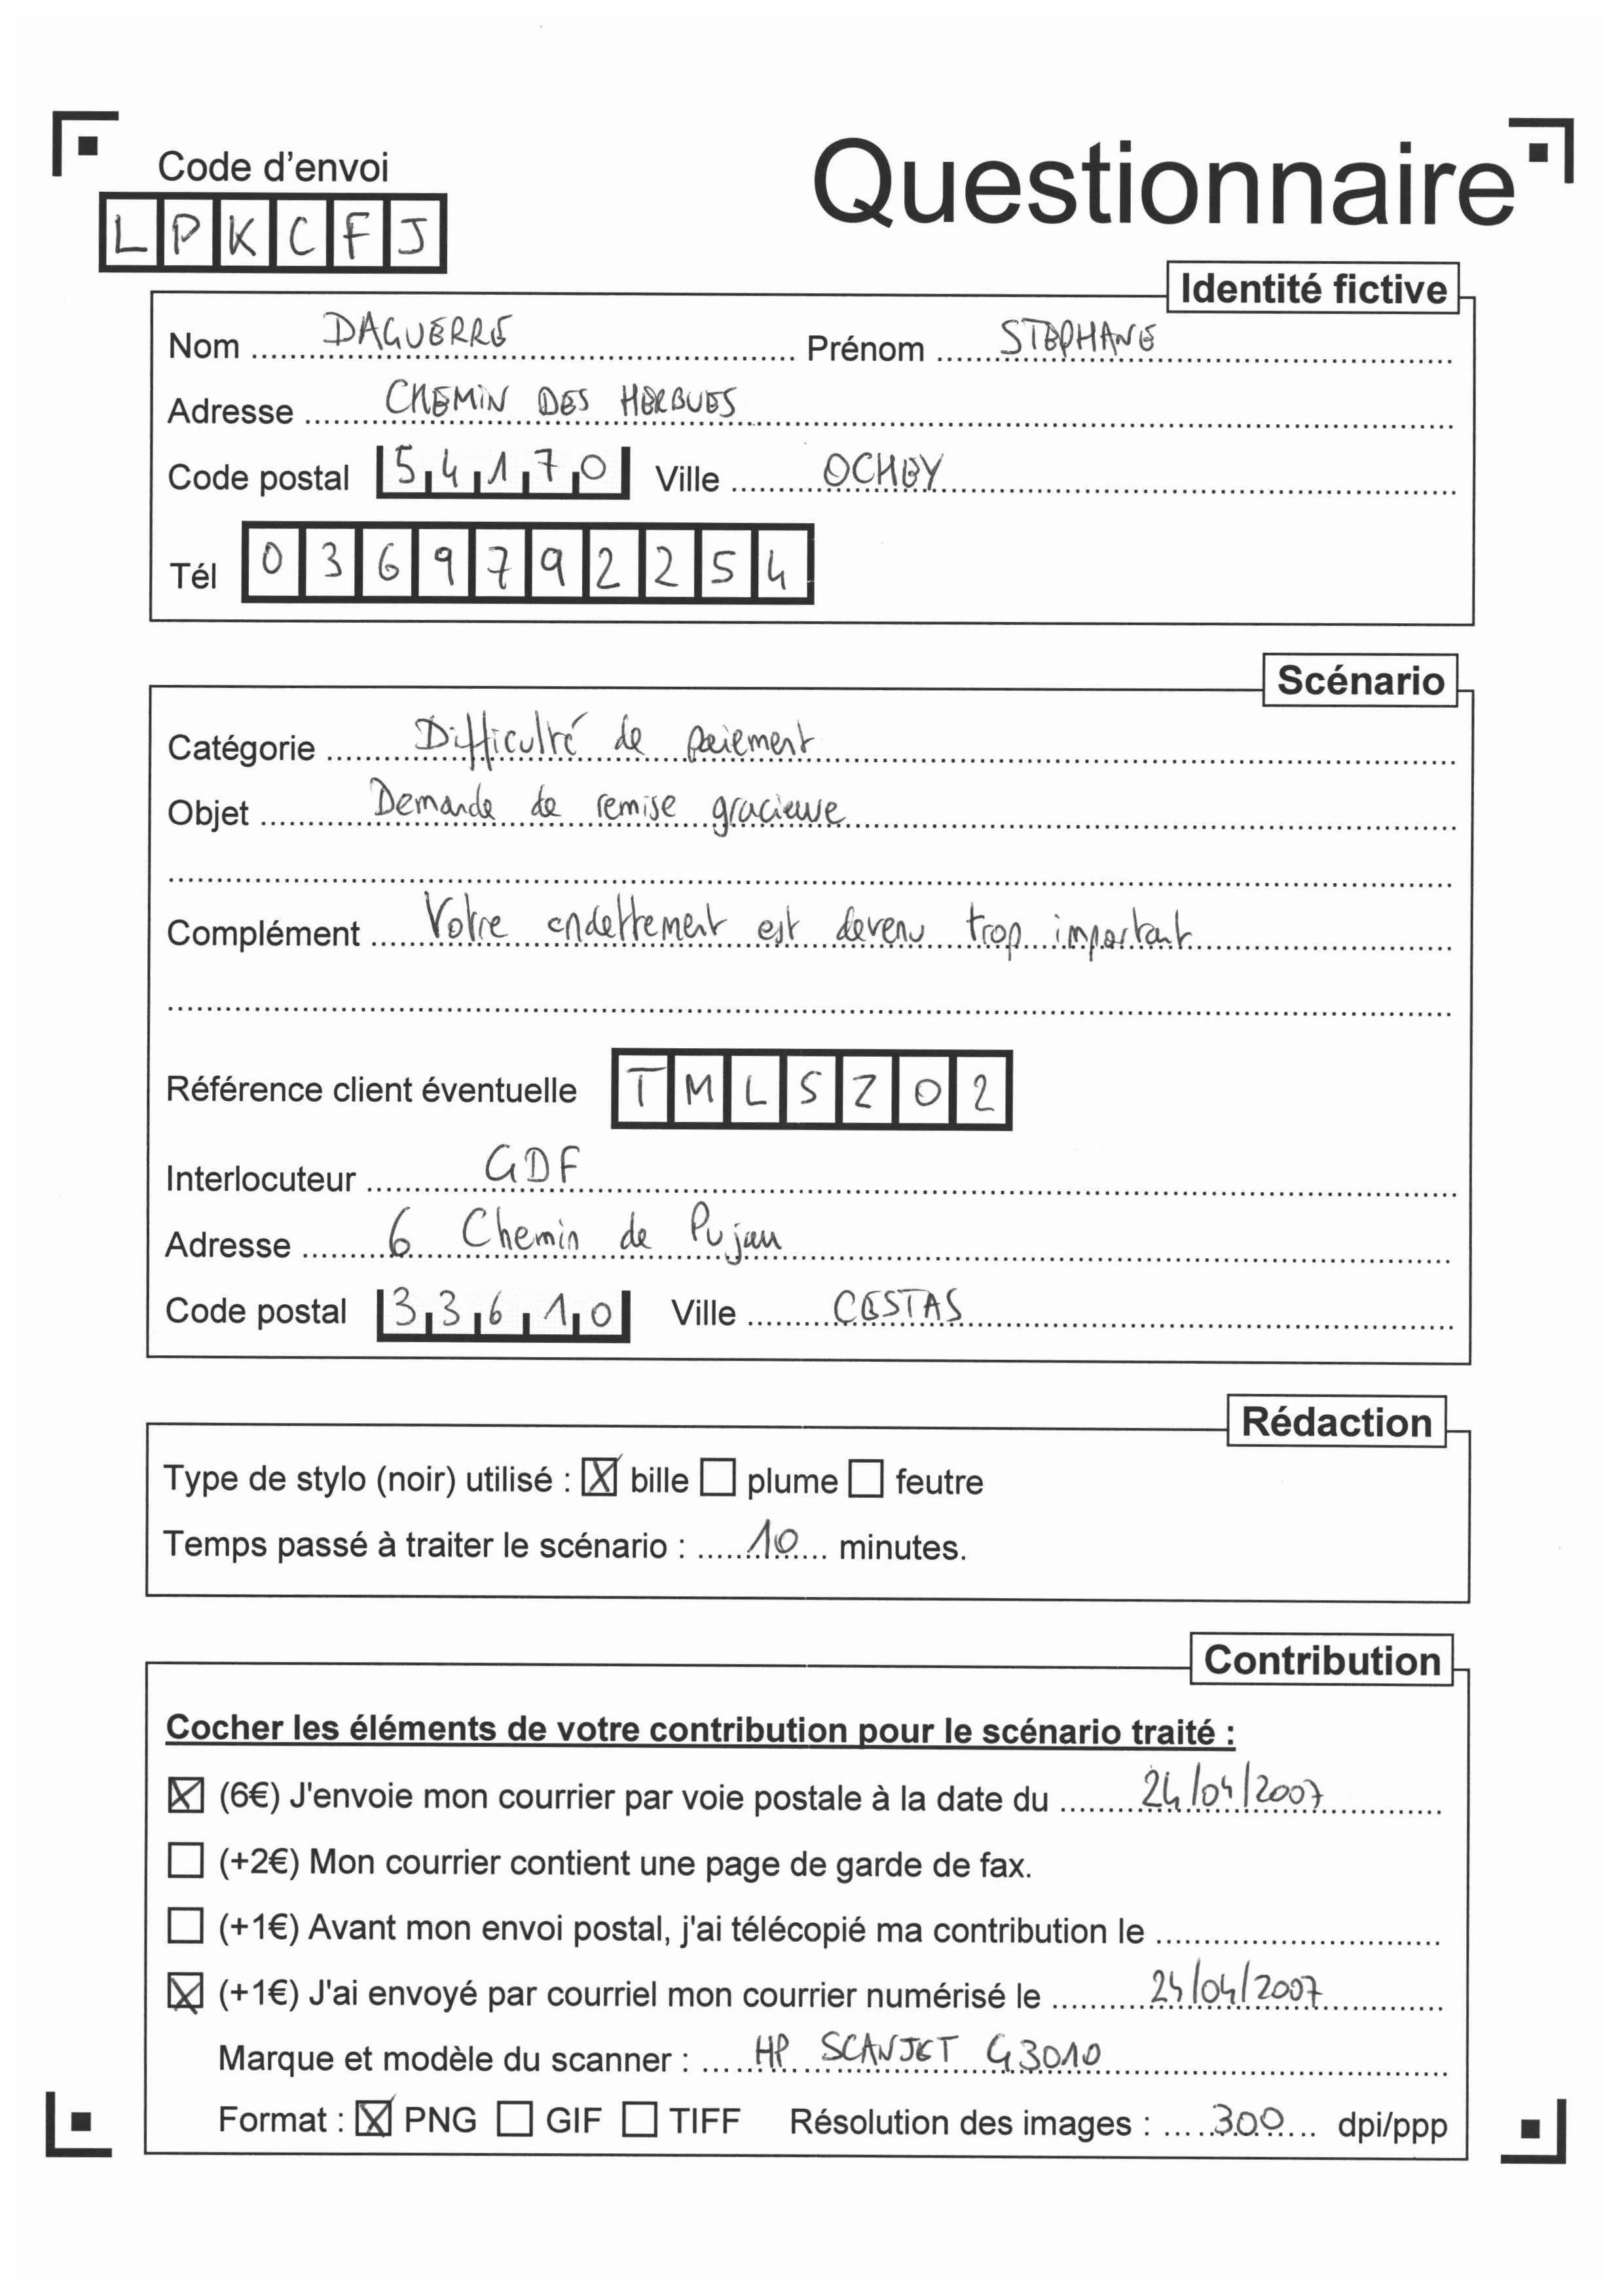 Code d'envoi
Questionnaire
LPKCFJ
Identité fictive
Nom DAGUERRE Prénom STEPHANE
Adresse CHEMIN DES HERBUES
Code postal 54170 Ville OCHEY
Tél 0369792254
Scénario
Catégorie Difficulté de paiement
Objet Demande de remise gracieuse
Complément Votre endettement est devenu trop important
Référence client éventuelle TMLSZ02
Interlocuteur GDF
Adresse 6 Chemin de Pujau
Code postal 33610 Ville CESTAS
Rédaction
Type de stylo (noir) utilisé : ☒ bille ☐ plume ☐ feutre
Temps passé à traiter le scénario : 10 minutes.
Contribution
Cocher les éléments de votre contribution pour le scénario traité :
☒ (6€) J'envoie mon courrier par voie postale à la date du 24/04/2007
☐ (+2€) Mon courrier contient une page de garde de fax.
☐ (+1€) Avant mon envoi postal, j'ai télécopié ma contribution le
☒ (+1€) J'ai envoyé par courriel mon courrier numérisé le 24/04/2007
Marque et modèle du scanner : HP SCANJET G3010
Format : ☒ PNG ☐ GIF ☐ TIFF Résolution des images : 300 dpi/ppp